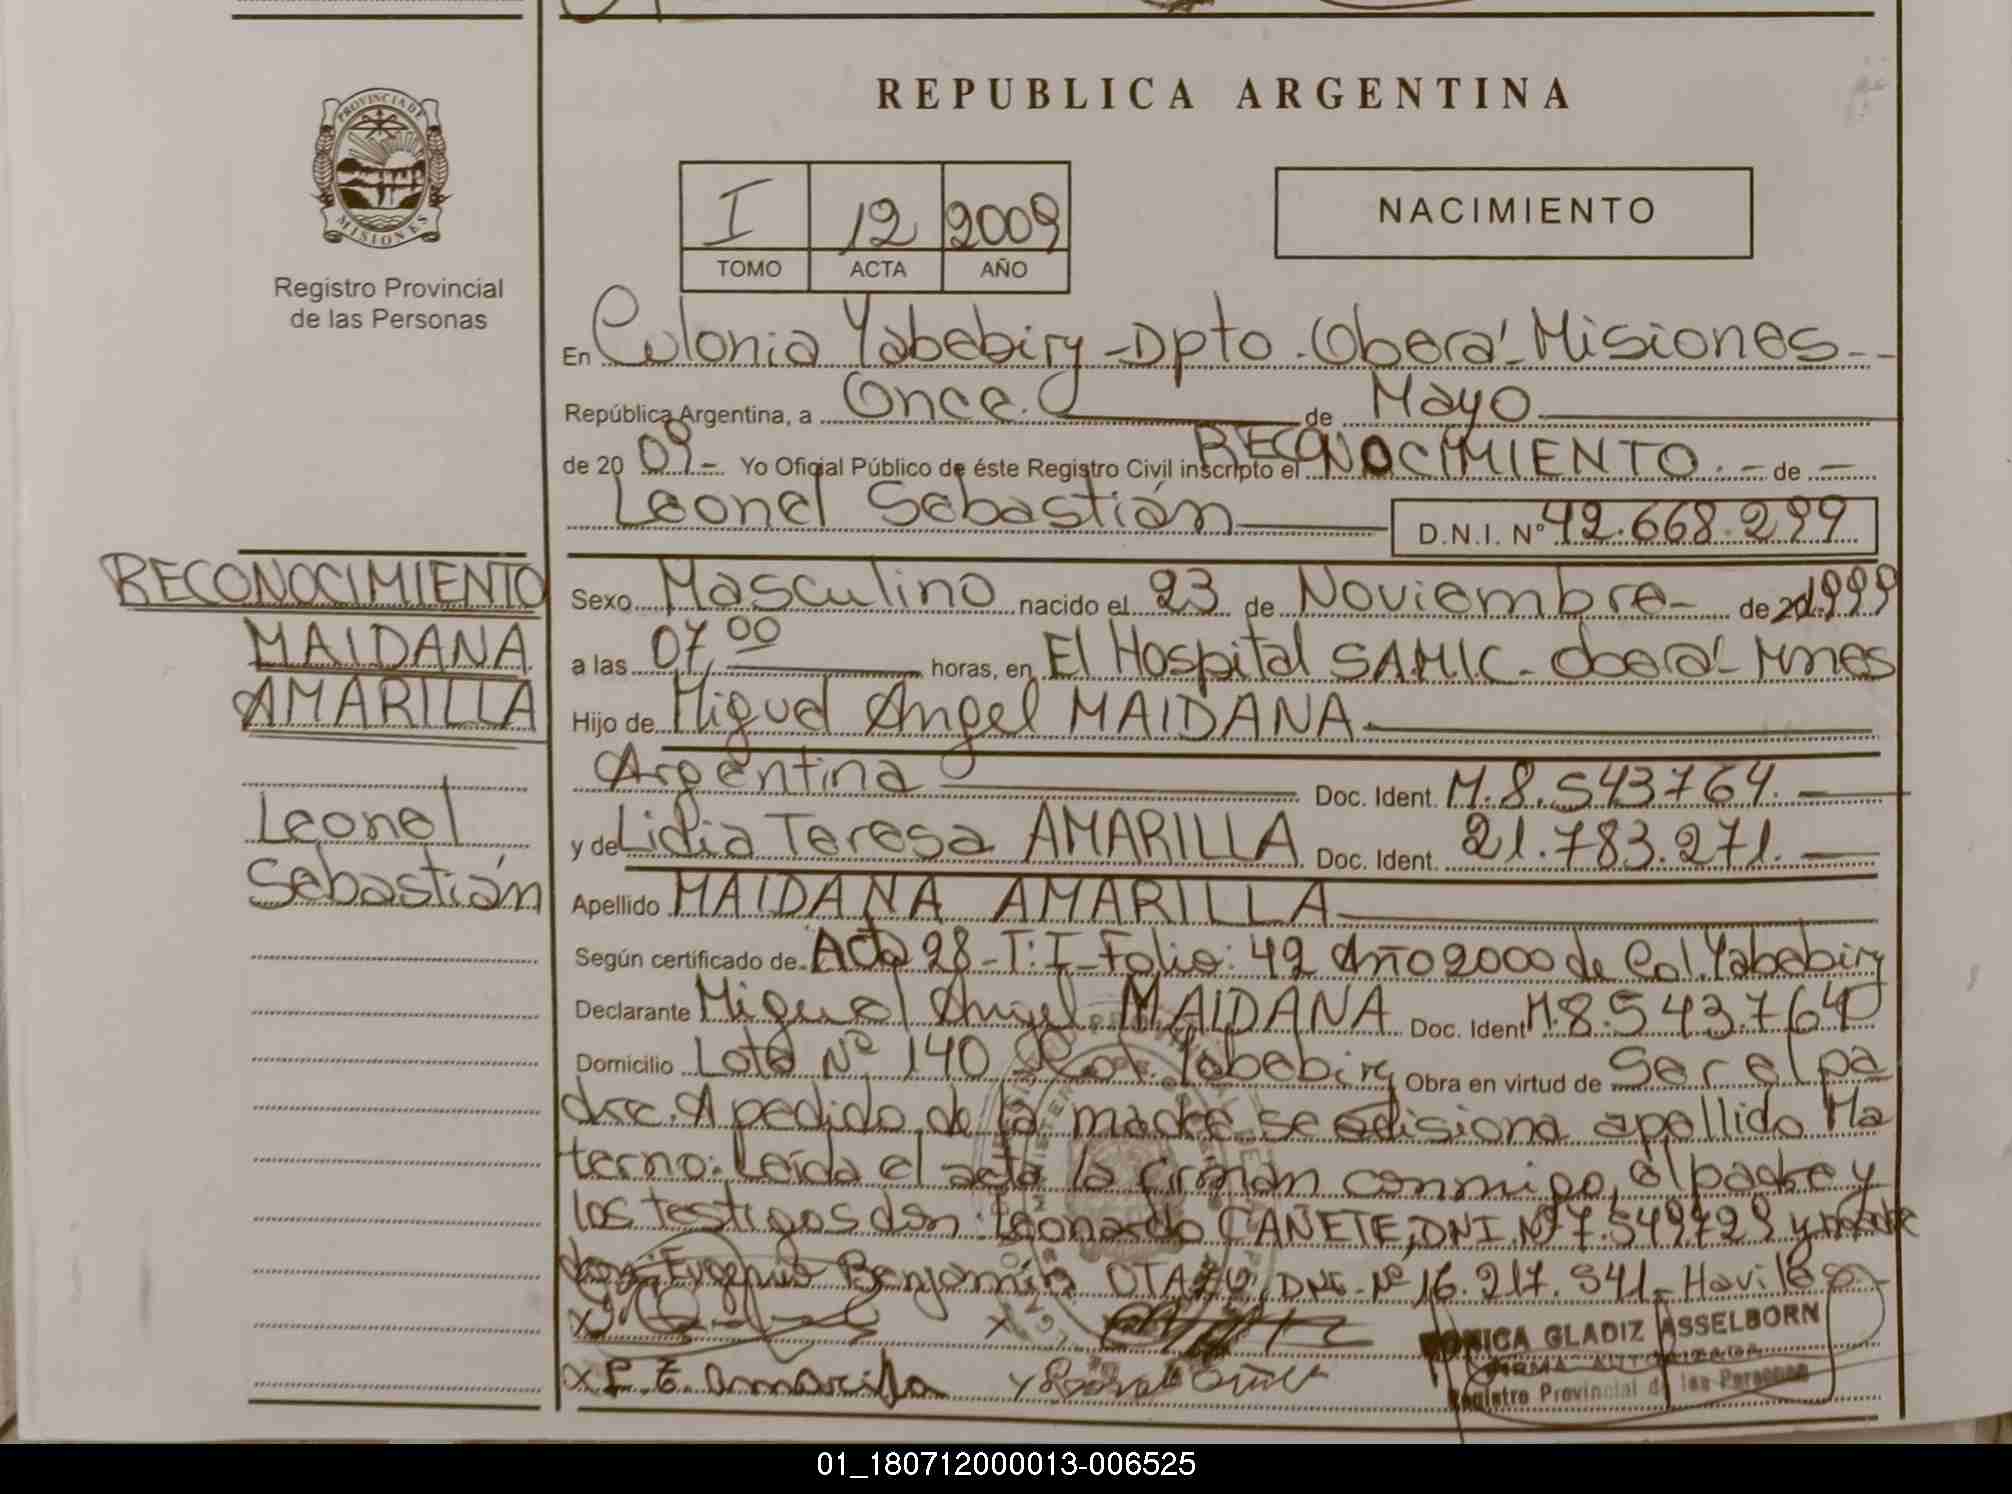 PROVINCIA DE
MISIONES
Registro Provincial
de las Personas
REPUBLICA ARGENTINA
I 12 2009
TOMO ACTA AÑO
NACIMIENTO
En Colonia Yabebiry - Dpto. Oberá - Misiones - -
República Argentina, a Once. de Mayo
de 20 09 - Yo Oficial Público de éste Registro Civil inscripto el RECONOCIMIENTO . - de -
Leonel Sebastián D.N.I. Nº 42.668.299
RECONOCIMIENTO
MAIDANA
AMARILLA
Leonel
Sebastián
Sexo Masculino nacido el 23 de Noviembre - de 20 1999
a las 07,00 horas, en El Hospital SAMIC - Oberá - Mnes
Hijo de Miguel Angel MAIDANA
Argentina Doc. Ident. M.8.543764.
y de Lidia Teresa AMARILLA Doc. Ident. 21.783.271.
Apellido MAIDANA AMARILLA
Según certificado de Acta 28 - T: I - Folio: 42 Año 2000 de Col. Yabebiry
Declarante Miguel Angel MAIDANA Doc. Ident M.8.543.764
Domicilio Lote Nº 140 Col. Yabebiry Obra en virtud de Ser el pa
dre. A pedido de la madre se adisiona apellido Ma
terno. Leída el acta la firman conmigo, el padre y
los testigos don: Leonardo CAÑETE, DNI Nº 7.549729 y
Benjamín DNI. Nº 16.217.541
x L. T. Amarilla
MONICA GLADIZ ASSELBORN
FIRMA AUTORIZADA
Registro Provincial de las Personas
01_180712000013-006525